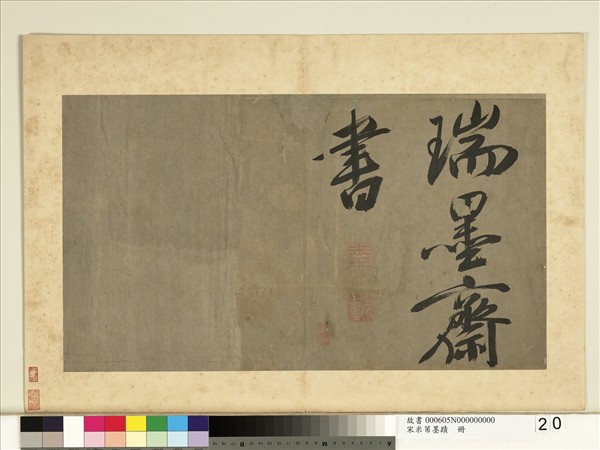 瑞墨齋
書
故書 000605N000000000
宋米芾墨蹟 冊
20